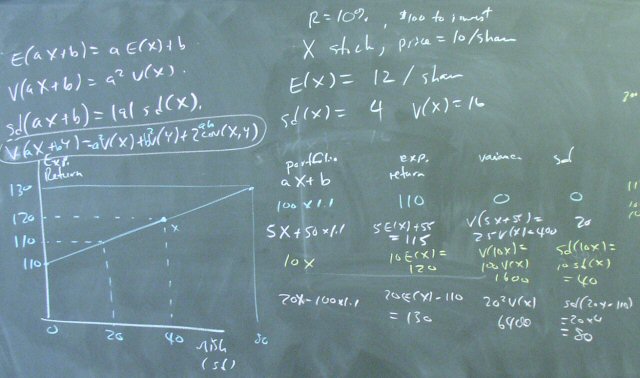 E(aX+b) = a E(X)+b
V(aX+b) = a² V(X).
sd(aX+b) = |a| sd(X).
V(aX+bY) = a²V(X)+b²V(Y)+2ab cov(X,Y)
R = 10%, $100 to invest
X stock, price = 10/share
E(X) = 12 / share
sd(X) = 4 V(X) = 16
Exp. Return
130
120
110
110
x
0 20 40 80
risk
(sd)
portfolio exp. variance sd
aX+b return
100x1.1 110 0 0
5X+50x1.1 5E(X)+55 = 115 V(5X+55) = 25V(X)=400 20
10X 10E(X) = 120 V(10X)= 100V(X) 1600 sd(10X)= 10sd(X) = 40
20X-100x1.1 20E(X)-110 = 130 20²V(X) 6400 sd(20X-110) =20x4 = 80